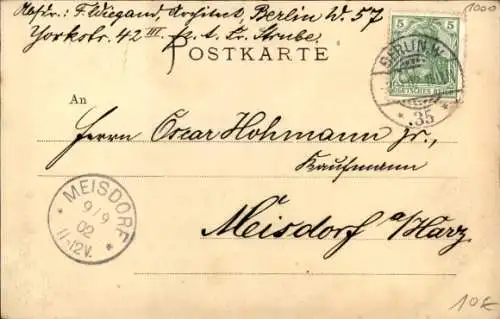 Absdr.: F. Wiegand, Architect, Berlin W. 57
Yorkstr. 42 III. fz. A. Lr. Strube.
1000
5 5
DEUTSCHES REICH
BERLIN W.
* 35 *
POSTKARTE
An
Herrn Oscar Hohmann jr.,
Kaufmann
Meisdorf a/Harz
MEISDORF
9/9
02
11-12V.
10€